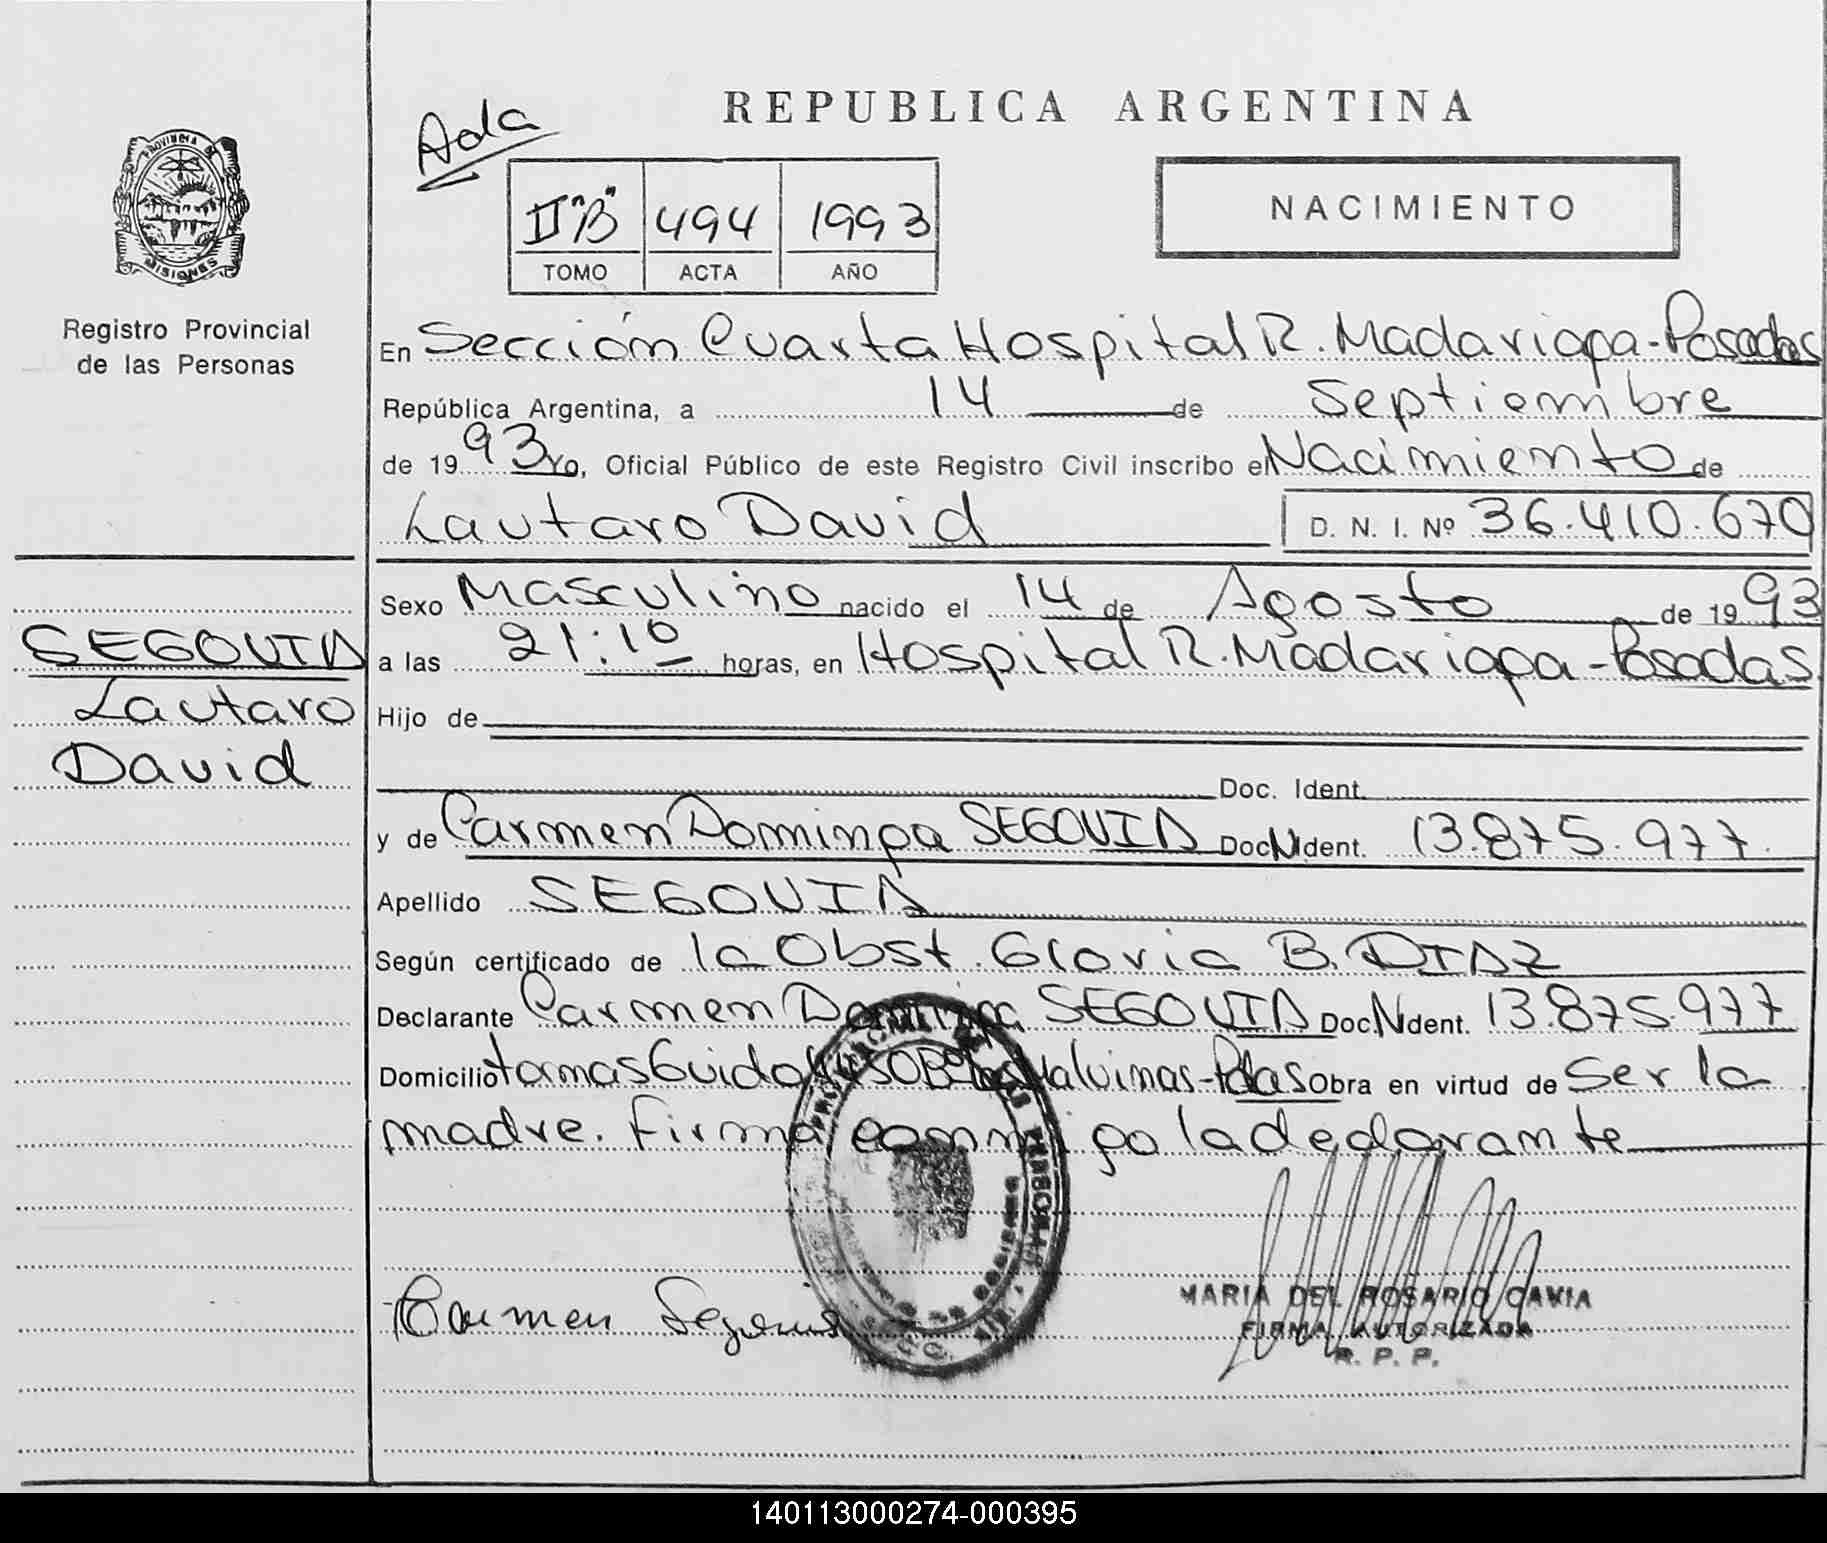 REPUBLICA ARGENTINA
Ada
II"B" 494 1993
TOMO ACTA AÑO
NACIMIENTO
PROVINCIA DE
MISIONES
Registro Provincial
de las Personas
En Sección Cuarta Hospital R. Madariaga-Posadas
República Argentina, a 14 de Septiembre
de 1993 yo, Oficial Público de este Registro Civil inscribo el Nacimiento de
Lautaro David D. N. I. Nº 36.410.670
Sexo Masculino nacido el 14 de Agosto de 1993
SEGOVIA
a las 21:10 horas, en Hospital R. Madariaga-Posadas
Lautaro
Hijo de
David
Doc. Ident.
y de Carmen Dominga SEGOVIA Doc. Ident. 13.875.977.
Apellido SEGOVIA
Según certificado de la Obst. Gloria B. DIAZ
Declarante Carmen Dominga SEGOVIA Doc. Ident. 13.875.977
Domicilio tomas Guido Malvinas-Pdas Obra en virtud de Ser la
madre. Firma conmigo la declarante
Carmen Segovia
MARIA DEL ROSARIO CAVIA
FIRMA AUTORIZADA
R. P. P.
140113000274-000395